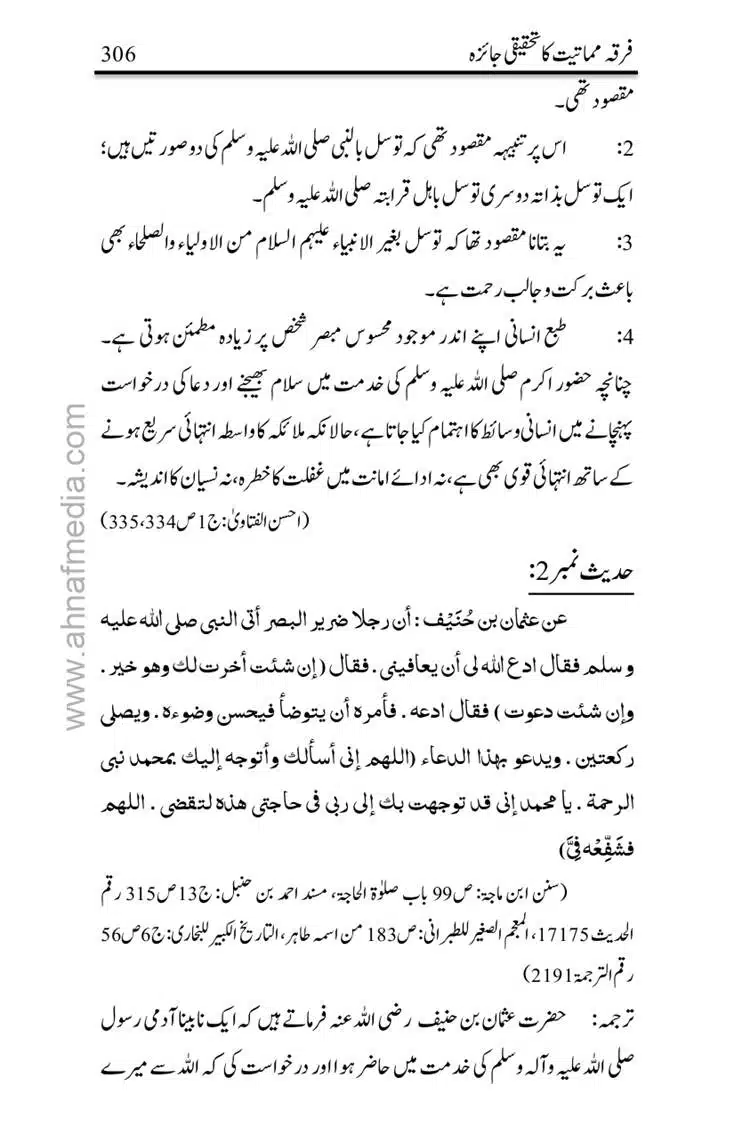 فرقہ مماتیت کا تحقیقی جائزہ 306
مقصود تھی۔
2: اس پر تنبیہہ مقصود تھی کہ توسل بالنبی صلی اللہ علیہ وسلم کی دو صورتیں ہیں؛
ایک توسل بذاتہ دوسری توسل باہل قرابتہ صلی اللہ علیہ وسلم۔
3: یہ بتانا مقصود تھا کہ توسل بغیر الانبیاء علیہم السلام من الاولیاء والصلحاء بھی
باعث برکت و جالب رحمت ہے۔
4: طبع انسانی اپنے اندر موجود محسوس مبصر شخص پر زیادہ مطمئن ہوتی ہے۔
چنانچہ حضور اکرم صلی اللہ علیہ وسلم کی خدمت میں سلام بھیجنے اور دعا کی درخواست
پہنچانے میں انسانی وسائط کا اہتمام کیا جاتا ہے، حالانکہ ملائکہ کا واسطہ انتہائی سریع ہونے
کے ساتھ انتہائی قوی بھی ہے، نہ ادائے امانت میں غفلت کا خطرہ، نہ نسیان کا اندیشہ۔
(احسن الفتاویٰ: ج1 ص334، 335)
حدیث نمبر 2:
عن عثمان بن حُنَیْف : أن رجلا ضریر البصر أتی النبی صلی الله علیه
و سلم فقال ادع الله لی أن یعافینی . فقال (إن شئت أخرت لك وهو خیر .
وإن شئت دعوت ) فقال ادعه . فأمره أن یتوضأ فیحسن وضوءه . ویصلی
ركعتین . ویدعو بهذا الدعاء (اللهم إنی أسألك وأتوجه إلیك بمحمد نبی
الرحمة . یا محمد إنی قد توجهت بك إلی ربی فی حاجتی هذه لتقضی . اللهم
فشَفِّعْه فِیَّ)
(سنن ابن ماجۃ: ص99 باب صلوٰۃ الحاجۃ، مسند احمد بن حنبل: ج13 ص315 رقم
الحدیث 17175، المعجم الصغیر للطبرانی: ص183 من اسمہ طاہر، التاریخ الکبیر للبخاری: ج6 ص56
رقم الترجمۃ 2191)
ترجمہ: حضرت عثمان بن حنیف رضی اللہ عنہ فرماتے ہیں کہ ایک نابینا آدمی رسول
صلی اللہ علیہ وآلہ وسلم کی خدمت میں حاضر ہوا اور درخواست کی کہ اللہ سے میرے
www.ahnafmedia.com